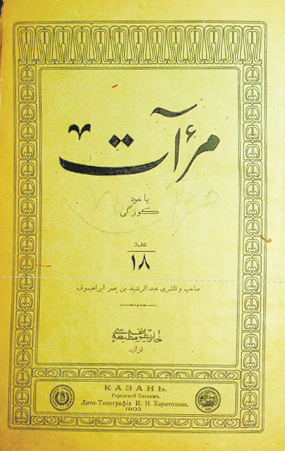 مرآت
یاخود
کوزگی
عدد
۱۸
صاحب و ناشری عبدالرشید بن عمر ابراهیموف
قزان
КАЗАНЬ.
Городской Пассажъ.
Лито-Типографія И. Н. Харитонова.
1903